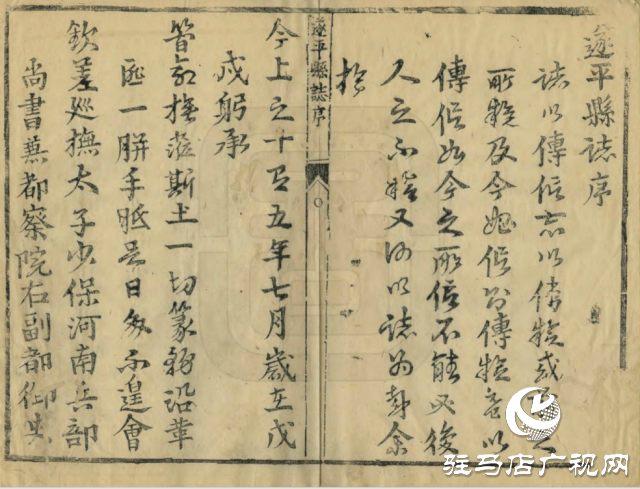 遂平縣誌序
誌以傳信亦以備疑或之
所疑及今始信則傳疑以
傳信如今之所信不能必後
人之不疑又何以誌為余
於
遂平縣誌序
今上之十有五年七月歲在戊
戌躬承
撫蒞斯土一切篆務沿革
匯一胼手胝足日夕不遑會
欽差巡撫太子少保河南兵部
尚書兼都察院右副都御史
驻马店广视网